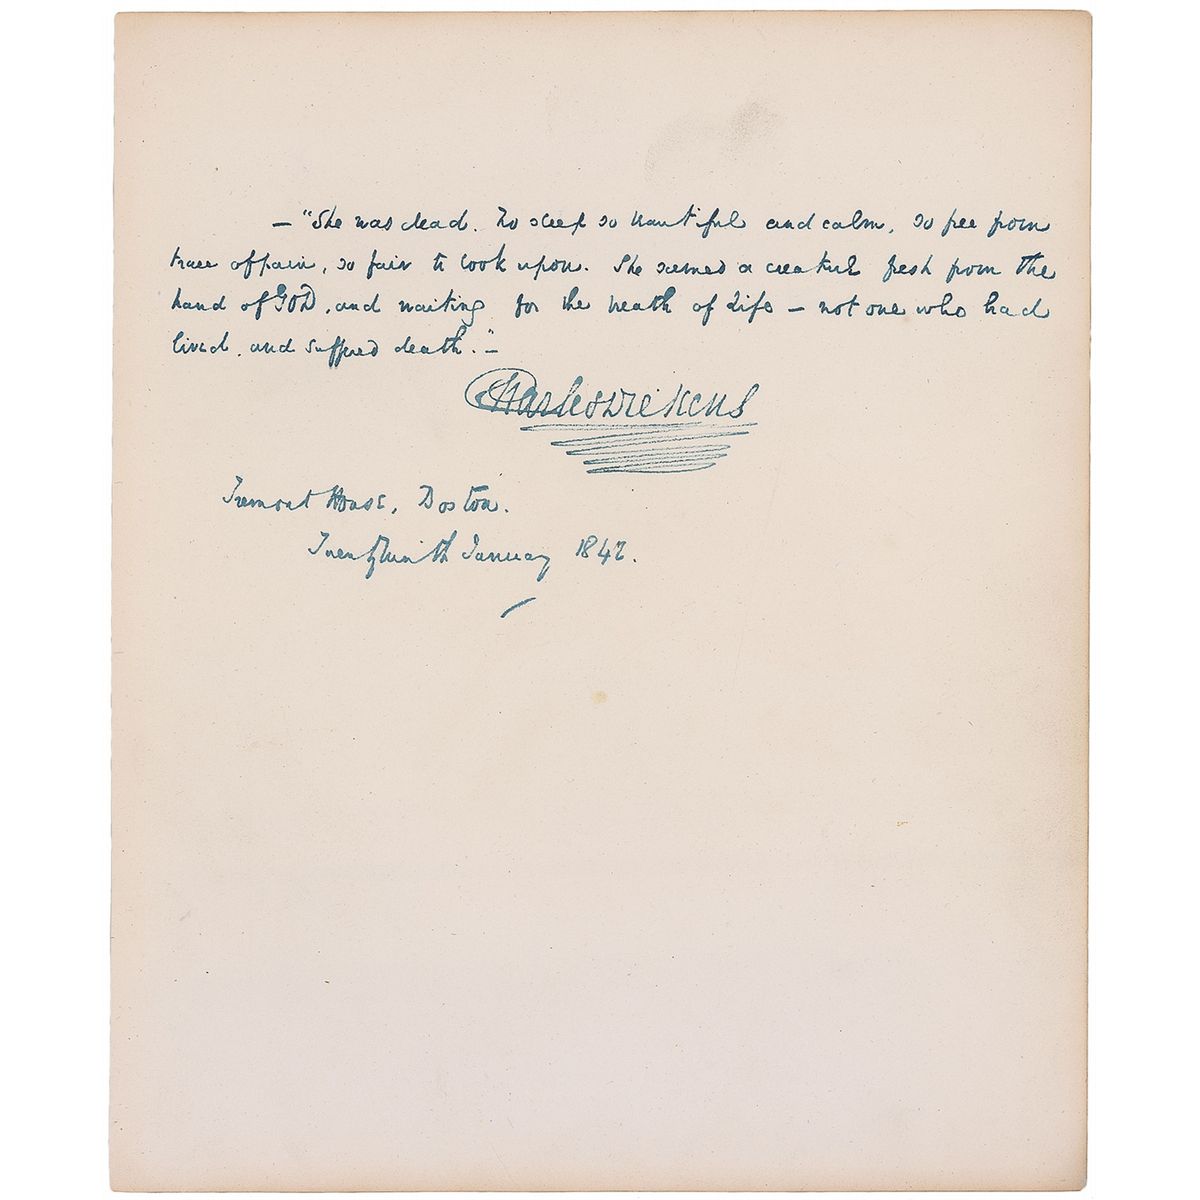 — "She was dead. No sleep so beautiful and calm, so free from
trace of pain, so fair to look upon. She seemed a creature fresh from the
hand of GOD, and waiting for the breath of Life — not one who had
lived, and suffered death." —
Charles Dickens
Tremont House, Boston.
Twenty Ninth January 1842.